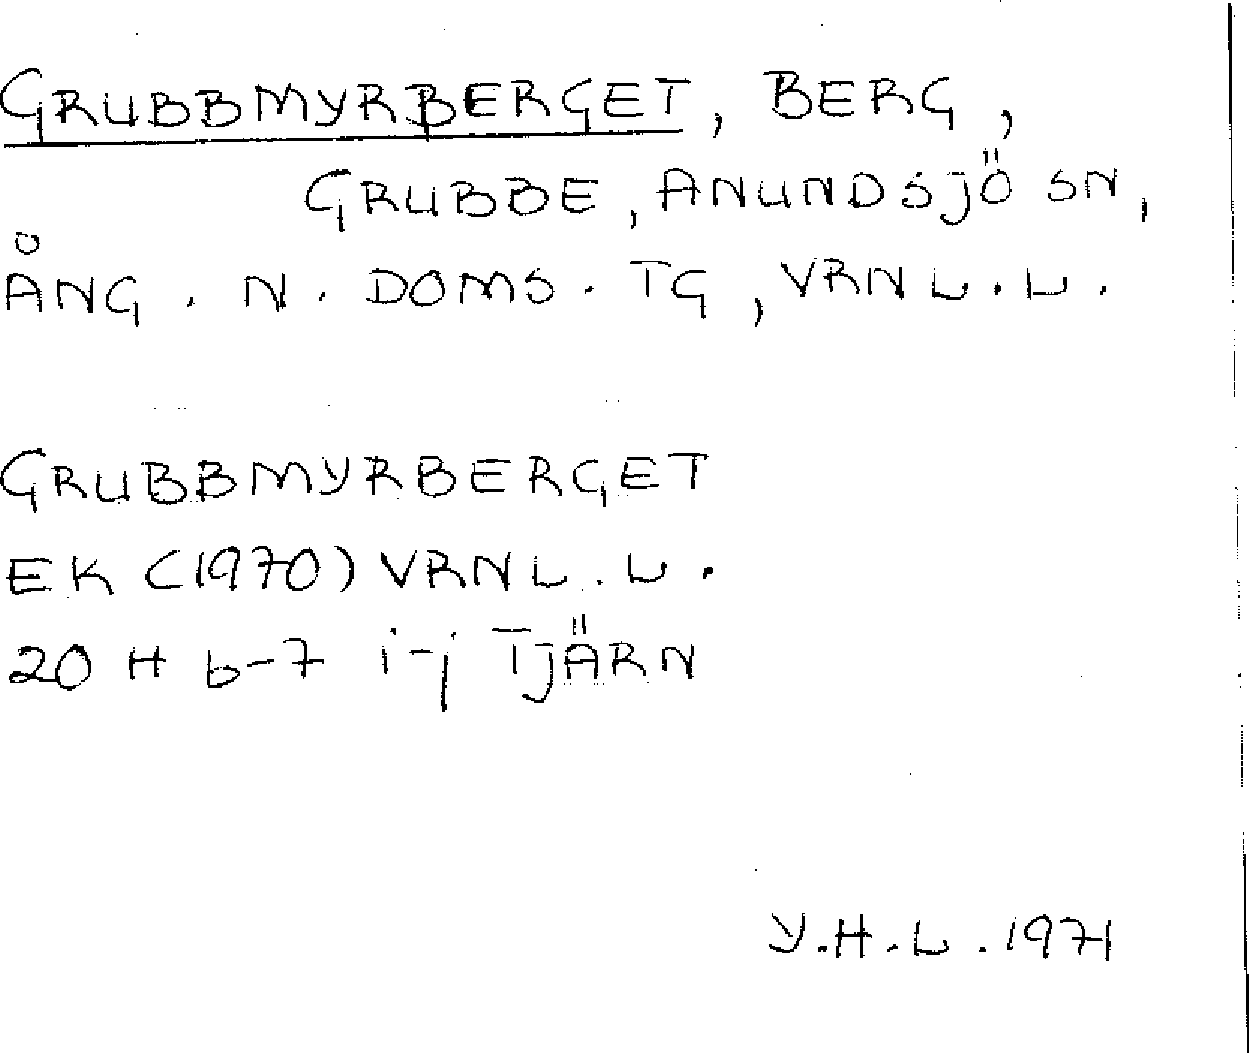 GRUBBMYRBERGET, BERG,
GRUBBE, ANUNDSJÖ SN,
ÅNG. N. DOMS. TG, VRNL.L.
GRUBBMYRBERGET
EK (1970) VRNL.L.
20 H b-7 i-j TJÄRN
Y.H.L. 1971